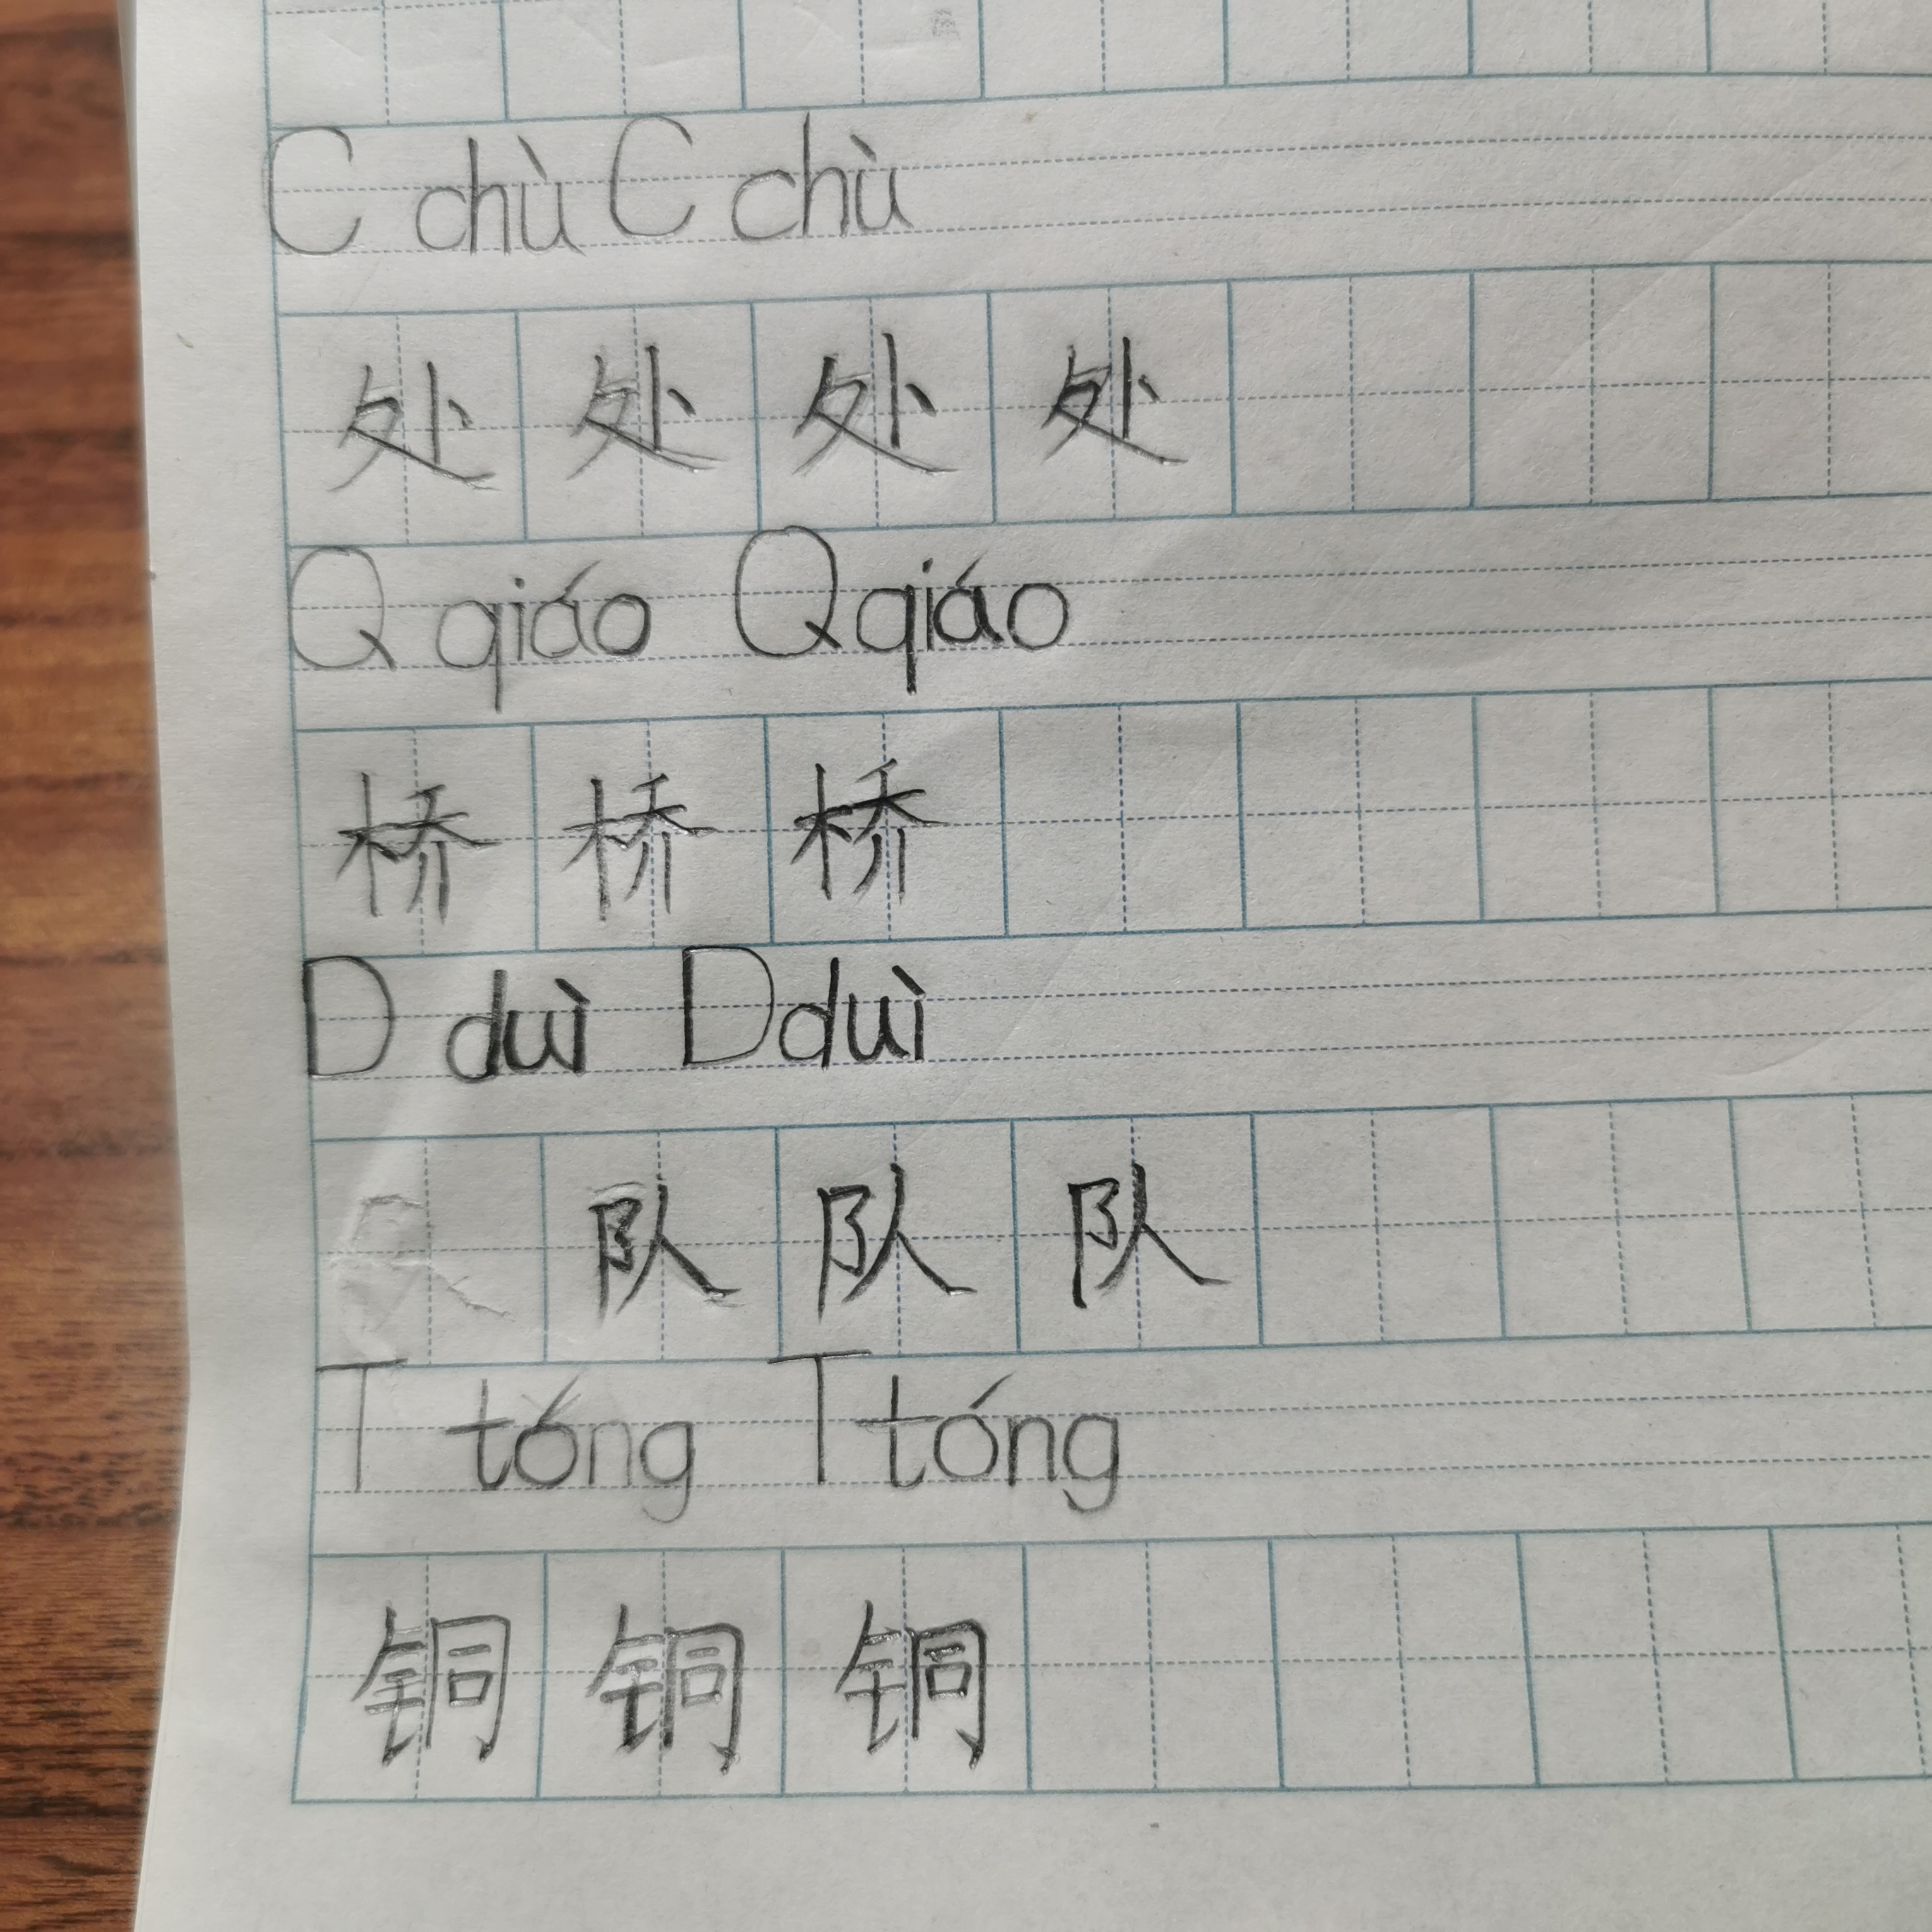 C chù C chù
处 处 处 处
Q qiáo Q qiáo
桥 桥 桥
D duì D duì
队 队 队
T tóng T tóng
铜 铜 铜